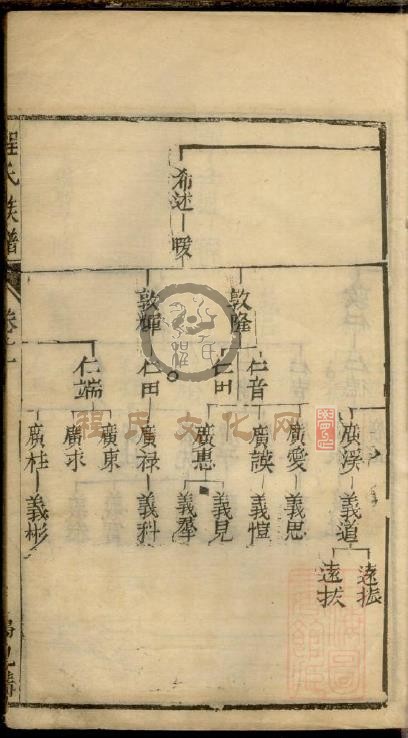 希述
暖
敦隆
敦輝
仁音
仁田
仁田
仁端
廣溪
廣愛
廣謨
廣惠
廣祿
廣東
廣求
廣桂
義道
義思
義愷
義見
義羣
義科
義彬
遠振
遠拔
程氏族譜
程氏文化网